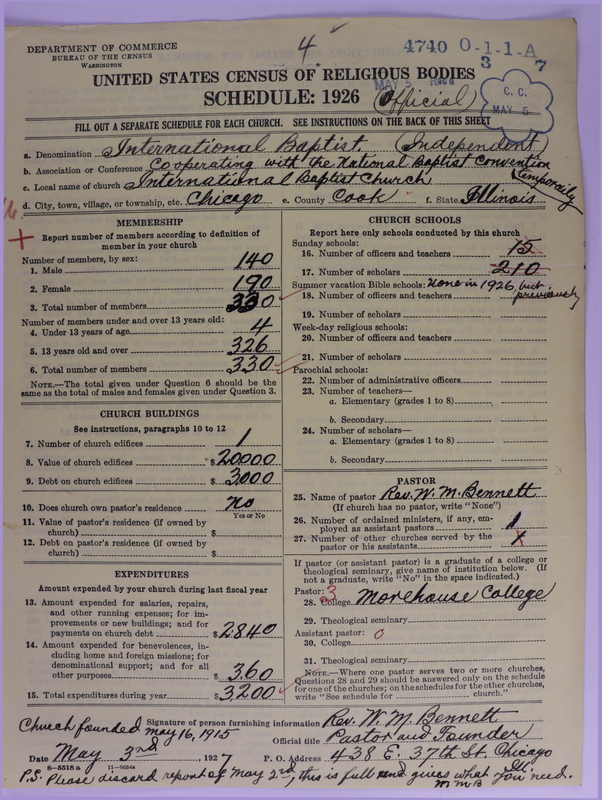 DEPARTMENT OF COMMERCE
BUREAU OF THE CENSUS
WASHINGTON
4
4740 0-1-1-A
3 7
UNITED STATES CENSUS OF RELIGIOUS BODIES
MAY 5
C. C.
MAY 5
SCHEDULE: 1926 (Official)
FILL OUT A SEPARATE SCHEDULE FOR EACH CHURCH. SEE INSTRUCTIONS ON THE BACK OF THIS SHEET
a. Denomination International Baptist. (Independent)
b. Association or Conference Cooperating with the National Baptist Convention (temporarily
c. Local name of church International Baptist Church
d. City, town, village, or township, etc. Chicago e. County Cook f. State Illinois
MEMBERSHIP
Report number of members according to definition of member in your church
Number of members, by sex:
1. Male 140
2. Female 190
3. Total number of members 330
Number of members under and over 13 years old:
4. Under 13 years of age 4
5. 13 years old and over 326
6. Total number of members 330
NOTE.—The total given under Question 6 should be the same as the total of males and females given under Question 3.
CHURCH BUILDINGS
See instructions, paragraphs 10 to 12
7. Number of church edifices 1
8. Value of church edifices $20000
9. Debt on church edifices $3000
10. Does church own pastor's residence? no
Yes or No
11. Value of pastor's residence (if owned by church) $
12. Debt on pastor's residence (if owned by church) $
EXPENDITURES
Amount expended by your church during last fiscal year
13. Amount expended for salaries, repairs, and other running expenses; for improvements or new buildings; and for payments on church debt $2840
14. Amount expended for benevolences, including home and foreign missions; for denominational support; and for all other purposes $360
15. Total expenditures during year $3,200
CHURCH SCHOOLS
Report here only schools conducted by this church
Sunday schools:
16. Number of officers and teachers 15
17. Number of scholars 210
Summer vacation Bible schools: none in 1926, but previously
18. Number of officers and teachers
19. Number of scholars
Week-day religious schools:
20. Number of officers and teachers
21. Number of scholars
Parochial schools:
22. Number of administrative officers
23. Number of teachers—
a. Elementary (grades 1 to 8)
b. Secondary
24. Number of scholars—
a. Elementary (grades 1 to 8)
b. Secondary
PASTOR
25. Name of pastor Rev. W. M. Bennett
(If church has no pastor, write "None")
26. Number of ordained ministers, if any, employed as assistant pastors 1
27. Number of other churches served by the pastor or his assistants 1
If pastor (or assistant pastor) is a graduate of a college or theological seminary, give name of institution below. (If not a graduate, write "No" in the space indicated.)
Pastor: 3
28. College Morehouse College
29. Theological seminary
Assistant pastor: 0
30. College
31. Theological seminary
NOTE.—Where one pastor serves two or more churches, Questions 28 and 29 should be answered only on the schedule for one of the churches; on the schedules for the other churches, write "See schedule for church."
Church founded may 16, 1915
Signature of person furnishing information Rev. W. M. Bennett
Official title Pastor and Founder
Date May 3rd, 1927 P. O. Address 438 E. 37th St. Chicago Ill.
8—5518a 11—9054a
P.S. Please discard report of May 2nd, this is full and gives what you need.
W M B